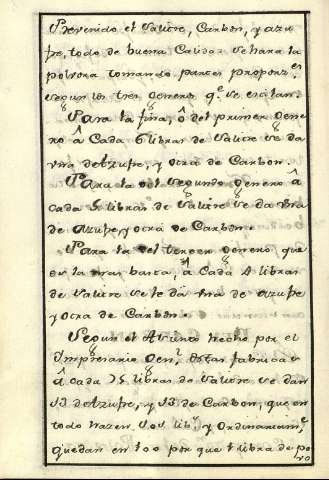 Prevenido el Salitre, Carbon, y azu
fre, todo de buena Calidad se hara la
polvora tomando partes proporz.es
segun los tres Generos q.e se explan.
Para la fina, ô del primer gene
ro â Cada 6 libras de Salitre se da
vna de Azufre, y otra de Carbon.
Para la del Segundo Genero â
cada 5 libras de Salitre se da vna
de azufre, y otra de Carbon.
Para la del tercer Genero, que
es la mas basta, â Cada 4 libras
de Salitre se le da vna de azufre
y otra de Carbon.
Segun el Asiento hecho por el
Impresario Gen.l destas fabricas
â Cada 75 libras de Salitre se dan
13 de Azufre, y 13 de Carbon, que en
todo hazen 101 lib.s y Ordinariam.te
quedan en 100 por que 1 libra de po
vo